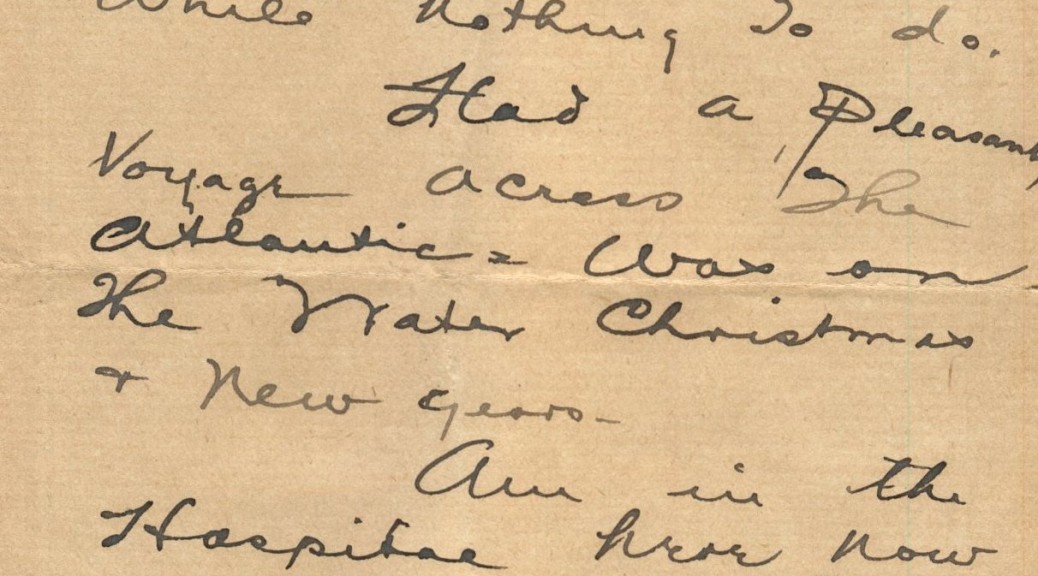 While Nothing To do.
Had a Pleasant
Voyage across The
Atlantic = Was on
The Water Christmas
+ New Years -
Am in the
Hospital here now